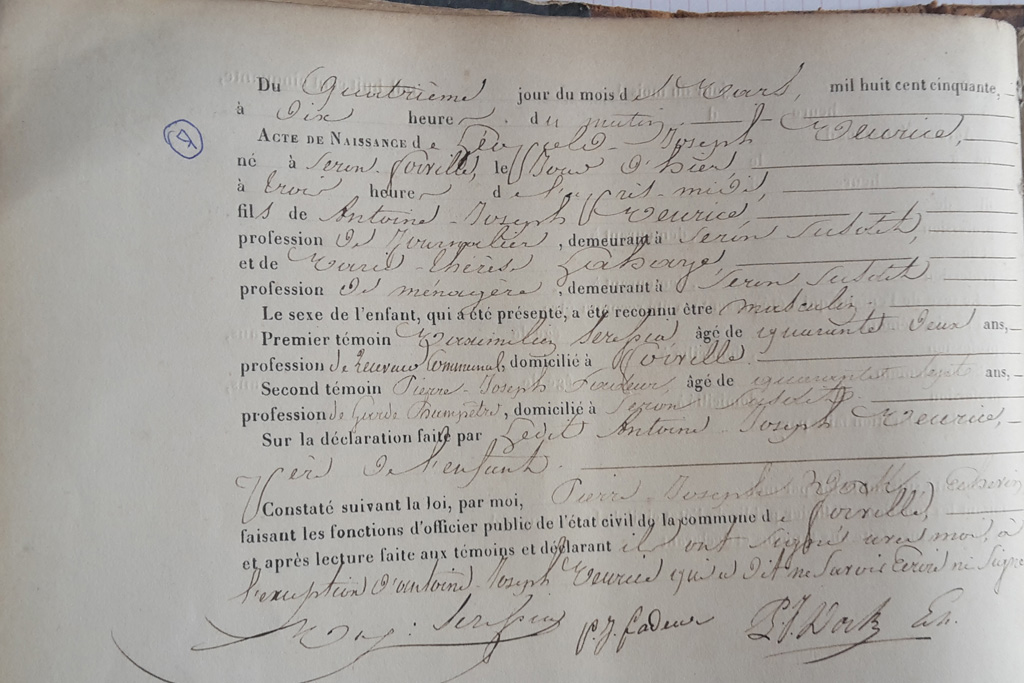 Du Quatrième jour du mois de Mars, mil huit cent cinquante,
à Dix heures du matin
ACTE DE NAISSANCE de Léopold-Joseph Meurice,
né à Seron-Forville, le Jour d'hier,
à trois heures de l'après-midi,
fils de Antoine-Joseph Meurice,
profession de Journalier, demeurant à Seron susdit,
et de Marie-thérèse Lahaye,
profession de ménagère, demeurant à Seron susdit.
Le sexe de l'enfant, qui a été présenté, a été reconnu être masculin.
Premier témoin Maximilien âgé de quarante deux ans,
profession de Receveur Communal, domicilié à Forville.
Second témoin Pierre-Joseph Fadeur, âgé de quarante sept ans,
profession de Garde Champêtre, domicilié à Seron susdit.
Sur la déclaration faite par Ledit Antoine Joseph Meurice,
Père de l'enfant.
Constaté suivant la loi, par moi, Pierre Joseph Echevin
faisant les fonctions d'officier public de l'état civil de la commune de Forville,
et après lecture faite aux témoins et déclarant ils ont signé avec moi, à
l'exception d'antoine-Joseph Meurice qui a dit ne savoir Ecrire ni signer
P. J. Fadeur P. J. Ech.